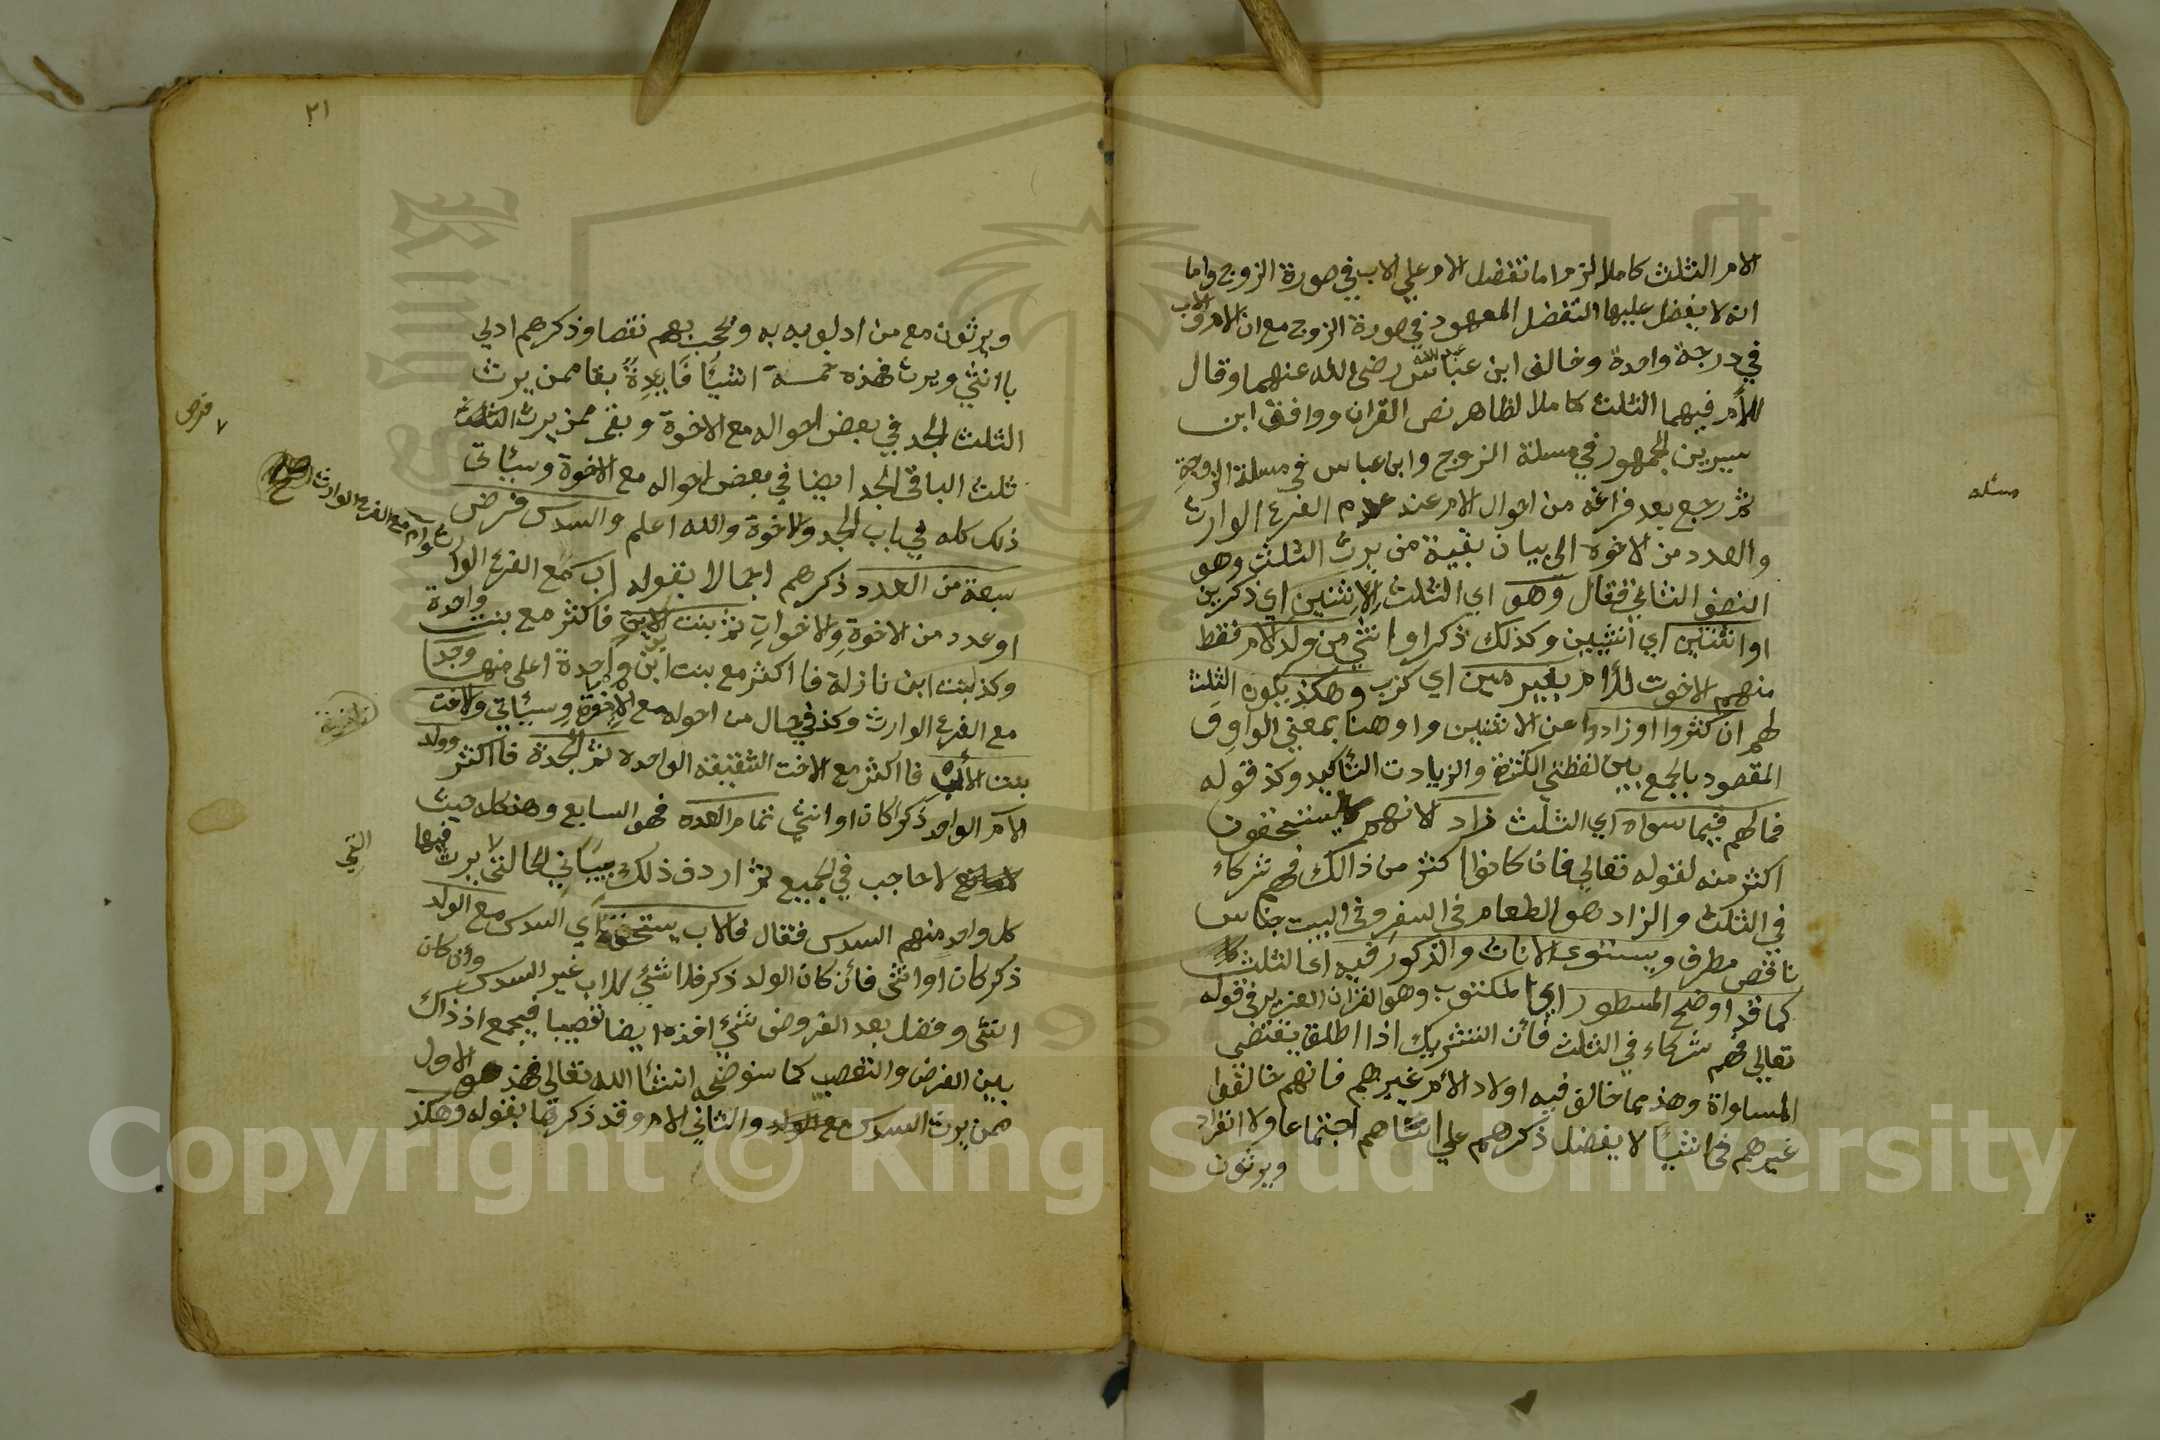 الام الثلث كاملا لزم اما تفضل الام علي الاب في صورة الزوج واما
انه لا يفضل عليها التفضل المعهود في صورة الزوج مع ان الام والاب
في درجة واحدة وخالف ابن عباس رضي الله عنهما وقال
للأم فيهما الثلث كاملا لظاهر نص القران ووافق ابن
سيرين الجمهور في مسلة الزوج وابن عباس في مسلة الزوجة
ثم رجع بعد فراغه من احوال الام عند عدم الفرع الوارث
والعدد من الاخوة الي بيان بقية من يرث الثلث وهو
النصف الثاني فقال وهو اي الثلث لاثنين اي ذكرين
او اثنتين اي انثيين وكذلك ذكرا وانثي من ولد الام فقط
منهم الاخوت للأم بغير مين اي كزب وهكذ يكون الثلث
لهم ان كثروا او زادوا عن الاثنين واو هنا بمعني الواو ف
المقصود بالجمع بين لفظتي الكثرة والزيادت التأكيد وكذ قوله
فمالهم فيما سواه اي الثلث زاد لانهم لا يستحقون
اكثر منه لقوله تعالي فان كانوا اكثر من ذالك فهم شركاء
في الثلث والزاد هو الطعام في السفر وفي البيت جناس
ناقص مطرف ويستوي الاناث والذكور فيه اي الثلث
كما قد اوضح المسطور اي المكتوب وهو القران العزيز في قوله
تعالي فهم شركاء في الثلث فأن التشريك اذا اطلق يقتضي
المساواة وهذ مما خالف فيه اولاد الأم غيرهم فانهم خالفوا
غيرهم في اشيأ لا يفضل ذكرهم علي انثاهم اجتماعا ولا انفراد
ويرثون
مسئله
٢١
ويرثون مع من ادلو به به ويحجب بهم نقصا وذكرهم ادلي
باانثي ويرث فهذه خمسة اشيأ فَايدِةً بقا ممن يرث
الثلث الجد في بعض احواله مع الاخوة وبقي ممن يرث
ثلث الباقي الجد ايضا في بعض احواله مع الاخوة وسيأتي
ذلك كله في باب الجد والاخوة والله اعلم والسدس فرض
سبعة من العدد ذكرهم اجمالا بقوله اب مع الفرع الوا
او عدد من الاخوة والاخوات ثم بنت الابن فاكثر مع بنت واحدة
وكذ بنت ابن نازلة فااكثر مع بنت ابن واحدة اعلي منها وجدا
مع الفرع الوارث وكذ في حال من احوله مع الاخوة وسيأتي ولاخت
بنت الأب فااكثر مع الاخت الشقيقه الواحده ثم الجدة فااكثر وولد
الام الواحد ذكرا كان او انثي تمام العده فهو السابع وهذ كله حيث
لا حاجب في الجميع ثم اردف ذلك ببيان الحال التي يرث فيها
كل واحد منهم السدس فقال فالاب يستحقه اي السدس مع الولد
ذكر كان او انثي فأن كان الولد ذكر فلا شئ للاب غير السدس وان كان
انثي وفضل بعد الفروض شئ اخذه ايضا تعصيبا فيجمع اذ ذاك
بين الفرض والتعصب كما سنوضحه انشأ الله تعالي فهذ هو الاول
ممن يرث السدس مع الولد والثاني الام وقد ذكرتها بقوله وهكذ
٧ فرض
التي